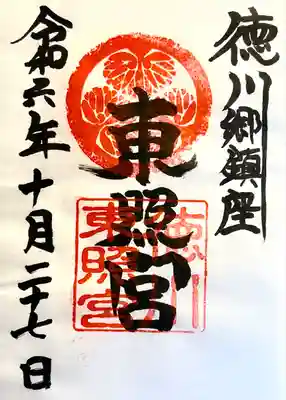 徳川郷鎮座
東照宮
徳川
東照宮
令和六年十月二十七日